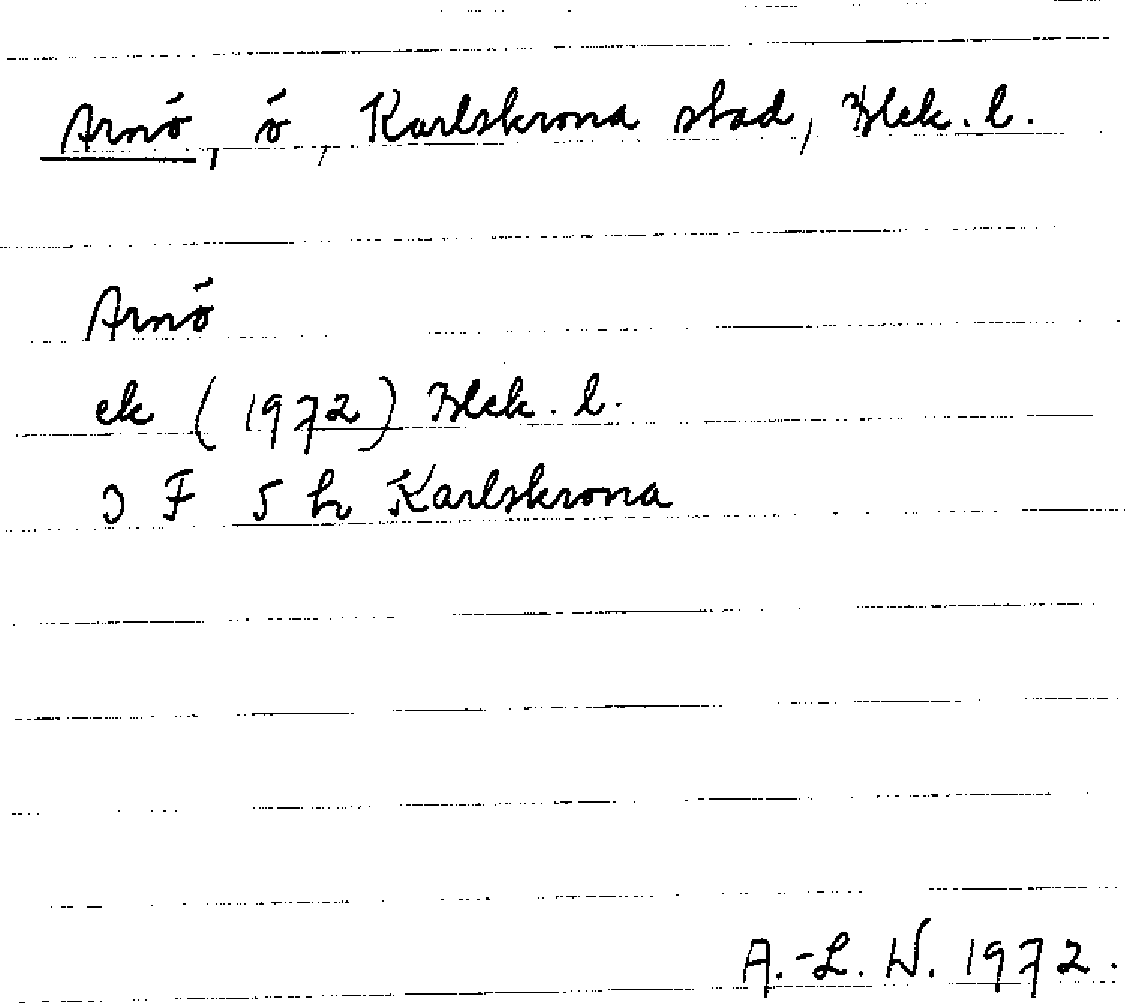 Arnö, ö, Karlskrona stad, Blek. l.
Arnö
ek (1972) Blek. l.
3 F 5 h Karlskrona
A.-L. W. 1972.